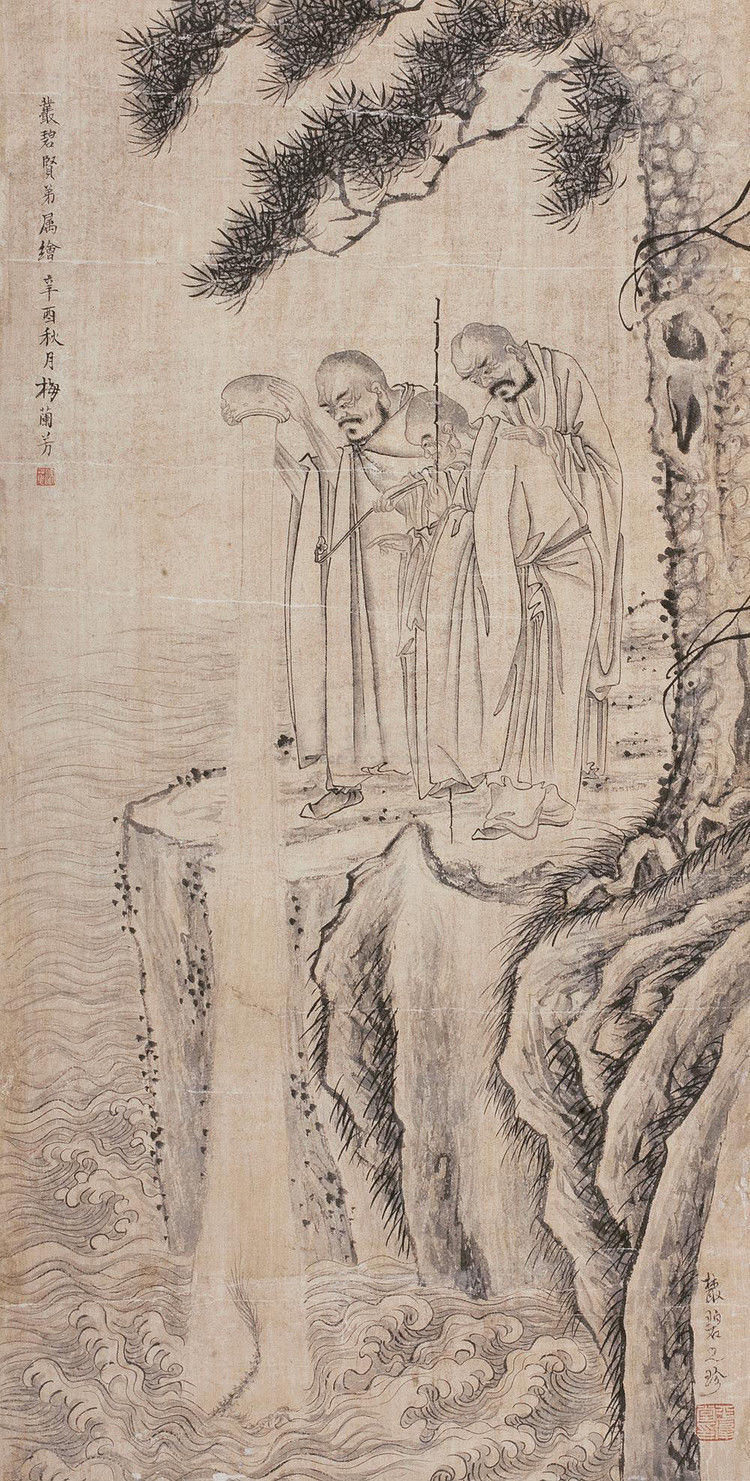 叢碧賢弟属繪 辛酉秋月 梅蘭芳
叢碧之珍